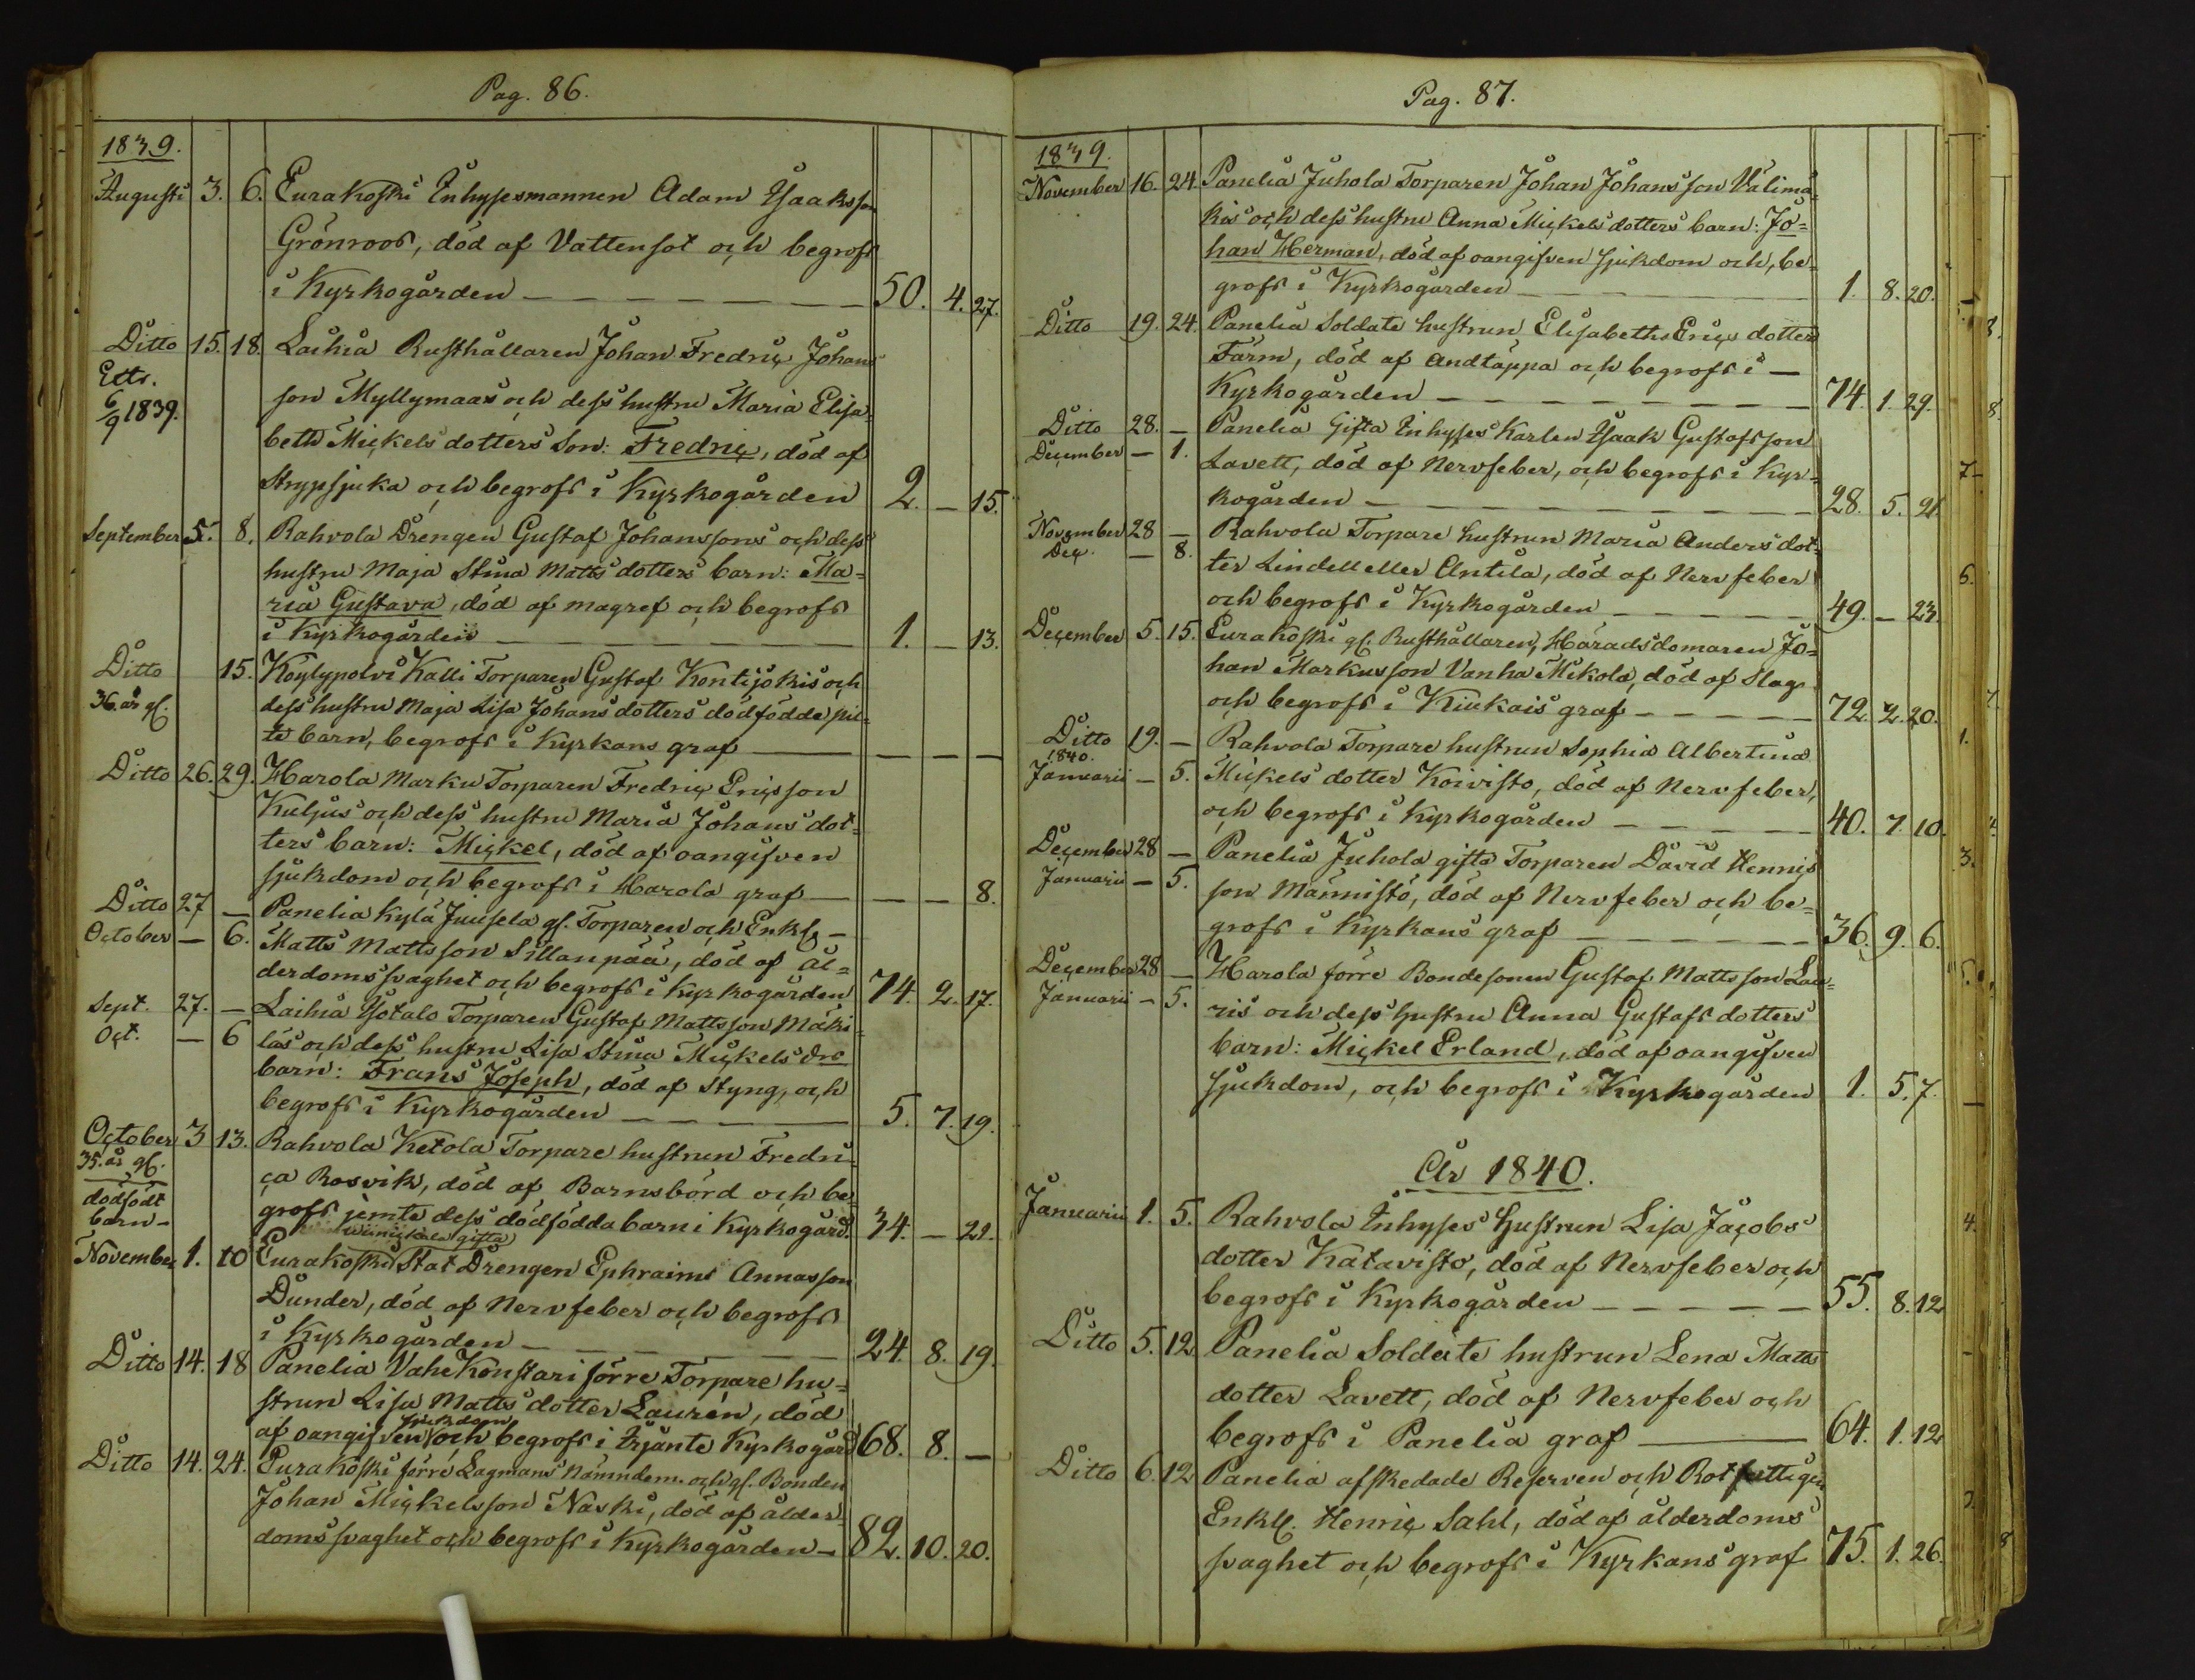 Pag. 86.
1839.
Augusti 3. 6. Eurakoski Inhysesmannen Adam Isaaksson
Grönroos, död af Vattensot och begrofs
i Kyrkogården — — — — — — 50. 4. 27.
Ditto 15. 18. Laihia Rusthållaren Johan Fredric Johans
Ettr.
6/9 1839.
son Myllymaas och dess hustru Maria Elisa-
beth Mickelsdotters Son: Fredric, död af
Strypsjuka och begrofs i Kyrkogården 2. — 15.
September 5. 8. Rahvola Drengen Gustaf Johanssons och dess
hustru Maja Stina Mattsdotters barn: Ma=
ria Gustava, död af magref och begrofs
i Kyrkogården — — — — 1. — 13.
Ditto 15. Köylypolvi Kalli Torparen Gustaf Kontijokis och
36. år gl.
dess hustru Maja Lisa Johansdotters dödfödde pil=
te barn, begrofs i Kyrkans graf — — — —
Ditto 26. 29. Harola Marku Torparen Fredric Ericsson
Kuljus och dess hustru Maria Johans dot=
ters barn: Mickel, död af oangifven
sjukdom och begrofs i Harola graf — — — 8.
Ditto 27 — Panelia Kylä Juusela gl. Torparen och Enkl. —
October — 6. Matts Mattsson Sillanpää, död af ål=
derdomssvaghet och begrofs i Kyrkogården 74. 2. 17.
Sept. 27. — Laihia Ylötalo Torparen Gustaf Mattsson Mäki=
Oct. — 6 läs och dess hustru Lisa Stina Mickels drs
barn: Frans Joseph, död af Styng, och
begrofs i Kyrkogården — — — — 5. 7. 19.
October 3 13. Rahvola Ketola Torpare hustrun Fredri
35. år gl.
ca Rosvik, död af Barnsbörd och be
dödfödt
barn -
grofs jemte dess dödfödda barn i Kyrkogård. 34. — 21.
gifta
November 1. 10 Eurakoski Stat Drengen Ephraim Annasson
Dunder, död af Nervfeber och begrofs
i Kyrkogården — — — — 24. 8. 19.
Ditto 14. 18 Panelia Vahe Konstari förre Torpare hu=
strun Lisa Matts dotter Laurén, död
sjukdom
af oangifven och begrofs i Irjante Kyrkogård 68. 8. —
Ditto 14. 24. Eurakoski förre Lagmans Nämndem. och gl. Bonden
Johan Mickelsson Näski, död af ålder=
doms svaghet och begrofs i Kyrkogården — 82. 10. 20.
Pag. 87.
1839.
November 16. 24. Panelia Juhola Torparen Johan Johansson Välimä=
kis och dess hustru Anna Mickelsdotters barn: Jo=
han Herman, död af oangifven sjukdom och, be=
grofs i Kyrkogården — 1. 8. 20.
Ditto 19. 24. Panelia Soldate hustrun Elisabeths Erics dotter
Färm, död af Andtäppa och begrofs i —
Kyrkogården — — — — — — 74. 1. 29.
Ditto 28. — Panelia Gifta Inhyses Karlen Isaak Gustafsson
December — 1. Lavett, död af Nervfeber, och begrofs i Kyr=
kogården — — — — — — 28. 5. 21
November 28 — Rahvola Torpare hustrun Maria Anders dot=
Dec. — 8. ter Lindell eller Antila, död af Nervfeber
och begrofs i Kyrkogården — — — — 49. — 23.
December 5. 15. Eurakoski gl. Rusthållaren, Häradsdomaren Jo=
han Markusson Vanha Mikola, död af Slag
och begrofs i Kiukais graf — — — — 72. 2. 20.
Ditto 19. — Rahvola Torpare hustrun Sophia Albertina
1840.
Januarii — 5. Mickels dotter Koivisto, död af Nervfeber,
och begrofs i Kyrkogården — — — — 40. 7. 10.
December 28 — Panelia Juhola gifta Torparen David Henrics
Januarii — 5. son Männistö, död af Nervfeber och be=
grofs i Kyrkans graf — — — — 36. 9. 6.
December 28 — Harola förre Bondesonen Gustaf Mattsson Lau=
Januarii — 5. ris och dess hustru Anna Gustafs dotters
barn: Mickel Erland, död af oangifven
sjukdom, och begrofs i Kyrkogården 1. 5. 7.
År 1840.
Januarii 1. 5. Rahvola Inhyses Hustrun Lisa Jacobs
dotter Katavisto, död af Nervfeber och
begrofs i Kyrkogården — — — — — 55. 8. 12
Ditto 5. 12 Panelia Soldate hustrun Lena Matts
dotter Lavett, död af Nervfeber och
begrofs i Panelia graf — 64. 1. 12
Ditto 6. 12 Panelia afskedade Reserven och Rotfattigen
Enkl. Henric Sahl, död af ålderdoms
svaghet och begrofs i Kyrkans graf 75. 1. 26.